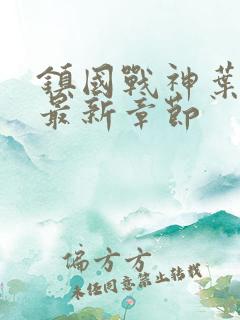 鎮國戰神葉
最新章節
偏方方
未任同意禁止转载